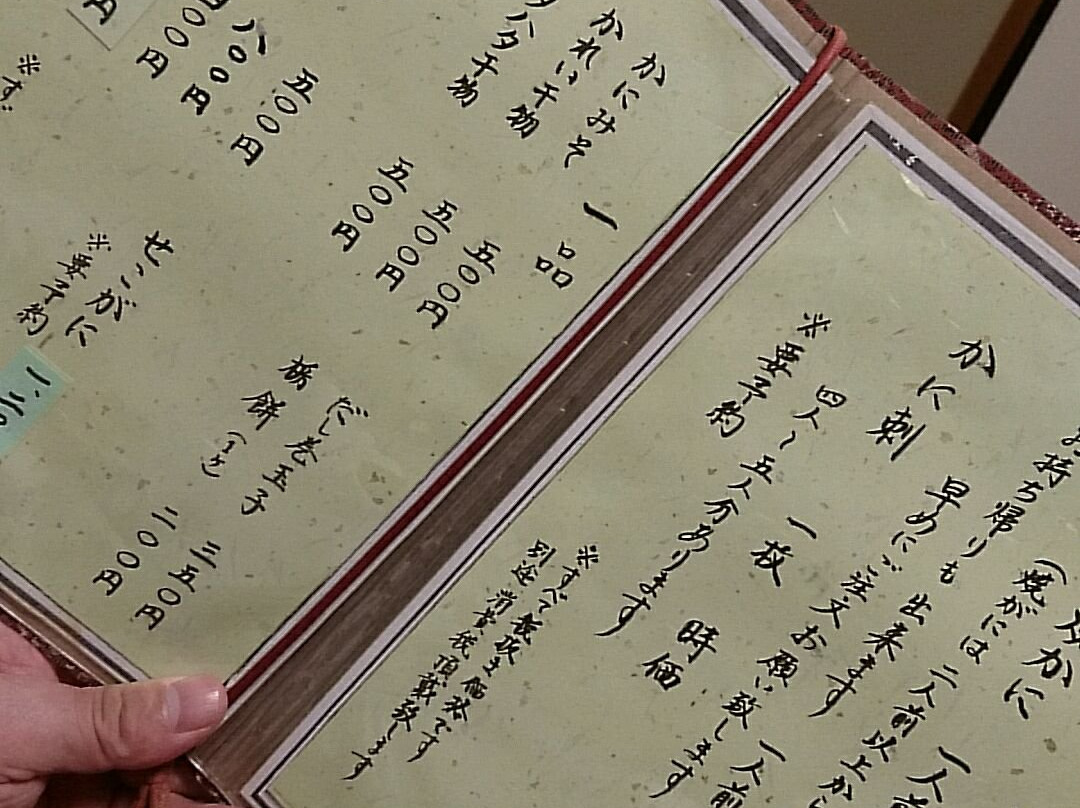 かに
一人前
(焼がには 二人前以上から
お持ち帰りも 出来ます
早めにご注文お願い致します
かに刺
一人前
一枚 時価
四人〜五人分あります
※要予約
※すべて税抜き価格です
別途 消費税 頂戴致します
一品
かにみそ 五〇〇円
かれい干物 五〇〇円
ハタハタ干物 五〇〇円
だし巻玉子 三五〇円
栃餅(1ケ) 二〇〇円
五〇〇円
八〇〇円
〇〇円
円
せこがに
※要予約
※す